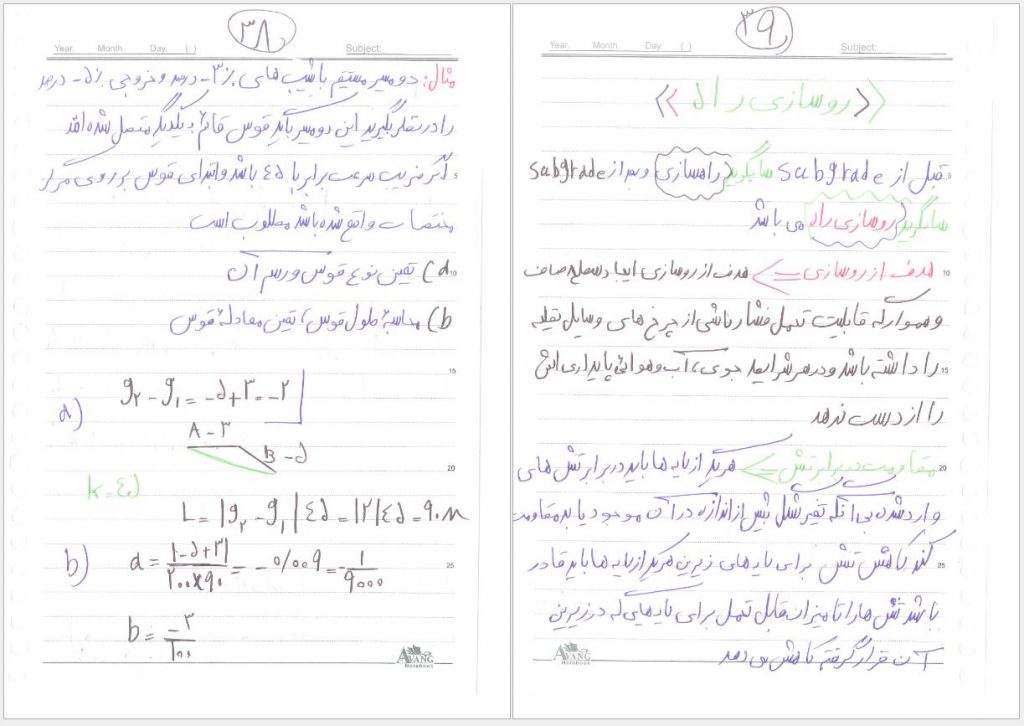 ۳۸
Year. Month. Day. ( ) Subject:
مثال: دو مسیر مستقیم با شیب های ۳٪- درصد و خروجی ۵٪- درصد
را در نظر بگیرید این دو مسیر باید قوس قائم به یکدیگر متصل شده اند
اگر ضریب سرعت برابر با ۴۵ باشد و ابتدای قوس بر روی مرکز
مختصات واقع شده باشد مطلوب است
a) تعین نوع قوس و رسم آن
b) محاسبهٔ طول قوس، تعین معادلهٔ قوس
a) g۲ - g۱ = -۵+۳ = -۲
A -۳
B -۵
k=۴۵
L = |g۲ - g۱| ۴۵ = |۲| ۴۵ = ۹۰ m
b) a = |-۵+۳| / ۲۰۰×۹۰ = -۰/۰۰۹ = -۱/۹۰۰۰
b = -۳/۱۰۰
AVANG
Notebook
۳۹
Year. Month. Day. ( ) Subject:
«روسازی راه»
قبل از Subgrade سابگرید (راهسازی) و بعد از Subgrade
سابگرید (روسازی راه) می باشد
هدف از روسازی <= هدف از روسازی ایجاد سطح صاف
و هموار که قابلیت تحمل فشار ناشی از چرخ های وسایل نقلیه
را داشته باشد و در هر شرایط جوی، آب و هوائی پایداری اش
را از دست ندهد
مقاومت در برابر تنش <= هر یک از لایه ها باید در برابر تنش های
وارد شده بی آنکه تغیر شکل بیش از اندازه در آن موجود یابد مقاومت
کند کاهش تنش برای لایه های زیرین هر یک از لایه ها باید قادر
باشد تنش ها را تا میزان قابل تحمل برای لایه هایی که در زیرین
آن قرار گرفته کاهش می دهد
AVANG
Notebook